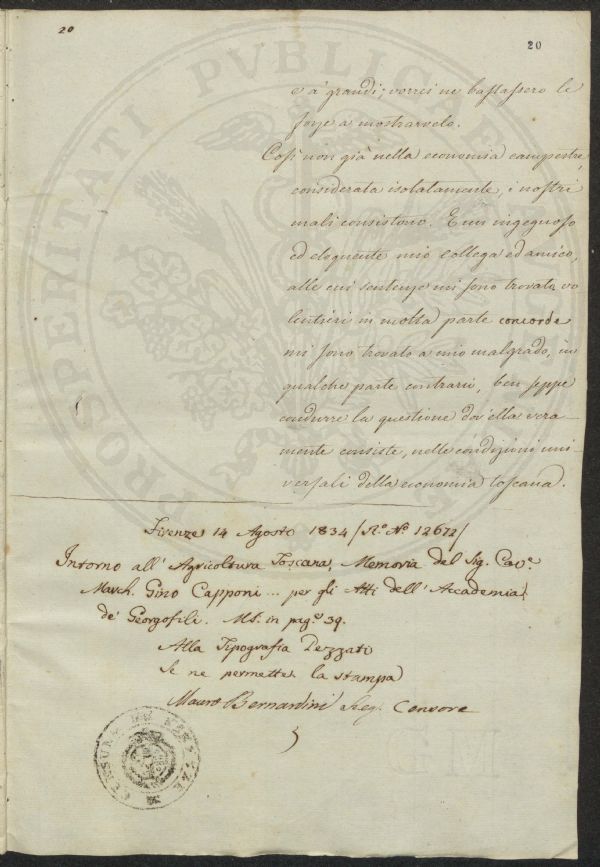 20
20
e a' grandi; vorrei ne bastassero le
forze a mostrarvelo.
Così non già nella economia campestre,
considerata isolatamente, i nostri
mali consistono. E un ingegnoso
ed eloquente mio collega ed amico,
alle cui sentenze mi sono trovato vo
lentieri in molta parte concorde
mi sono trovato a mio malgrado, in
qualche parte contrario, ben seppe
condurre la questione dov'ella vera-
mente consiste, nelle condizioni uni-
versali della economia toscana.
Firenze 14 Agosto 1834 / N.° 12672/
Intorno all'Agricoltura Toscana, Memoria del Sig. Cav.e
March. Gino Capponi ... per gli Atti dell'Accademia
de' Georgofili. MS. in pag.e 39.
Alla Tipografia Pezzati
Se ne permette la stampa
Mauro Bernardini Reg. Censore
PROSPERITATI PUBLICAE
CENSURA DI FIRENZE